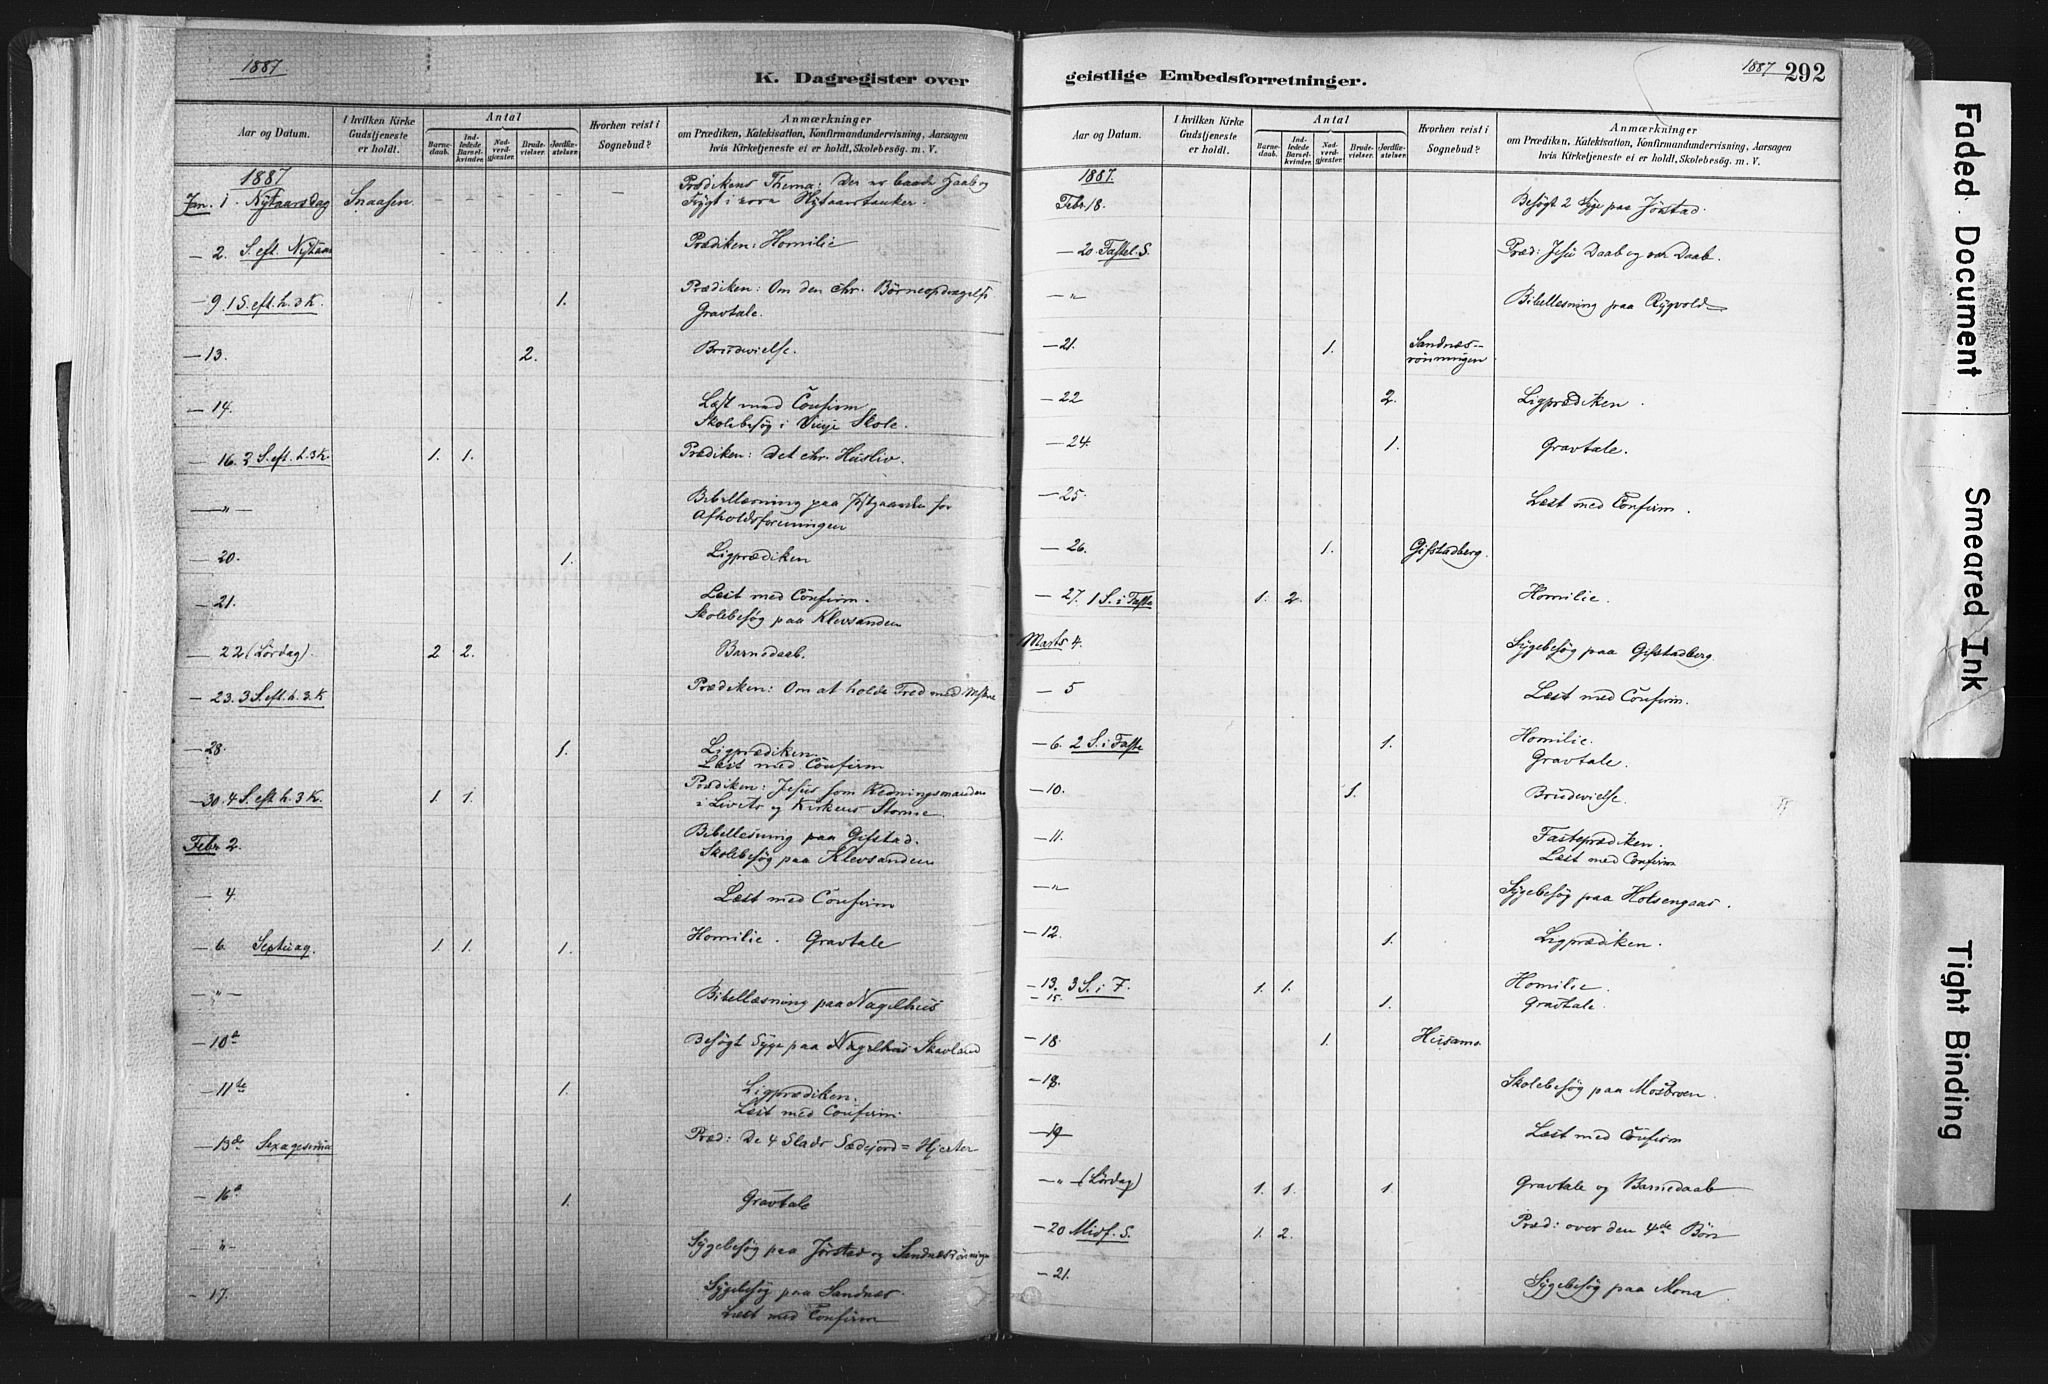 1887
K. Dagregister over
Aar og Datum. I hvilken Kirke Gudstjeneste er holdt. Antal Barnedaab. Indledede Barselkvinder. Nadverdgjester. Brudevielser. Jordfæstelser. Hvorhen reist i Sognebud? Anmærkninger
om Prædiken, Katekisation, Konfirmandundervisning, Aarsagen
hvis Kirketjeneste ei er holdt, Skolebesøg. m. V.
1887
Jan. 1. Nytaarsdag Snaasen - - - - - - Prædikens Thema: Der er baade Haab og
Frygt i vore Nytaarstanker.
- 2. S. eft. Nytaar - - - - - Prædiken: Homilie
- 9. 1 S. eft. h. 3 K. 1. Prædiken: Om den chr. Børneopdragelse
Gravtale.
- 13. 2. Brudevielse.
- 14. Læst med Confirm
Skolebesøg i Vinje Skole.
- 16. 2 S. eft. h. 3 K. 1. 1. Prædiken: Det chr. Husliv.
- " - Bibellæsning paa for
Afholdsforeningen
- 20 1. Ligprædiken
- 21. Læst med Confirm.
Skolebesøg paa Klevsanden
- 22 (Lørdag). 2 2. Barnedaab.
- 23. 3 S. eft. h. 3. K Prædiken: Om at holde Fred med
- 28. 1. Ligprædiken.
Læst med Confirm
- 30. 4 S. eft h. 3 K. 1. 1. Prædiken: Jesus som Redningsmanden
i Livets og Kirkens Storme.
Febr 2. Bibellesning paa Gifstad.
Skolebesøg paa Klevsanden
- 4 Læst med Confirm
- 6. Septuag. 1. 1. 1. Homilie. Gravtale
- " - Bibellæsning paa Nagelhus
- 10de Besøgt Syge paa Nagelhus Skavland
- 11te 1. Ligprædiken.
Læst med Confirm.
- 13de Sexagesima Præd: De 4 Slags Sædejord = Hjerter
- 16de 1. Gravtale
- " - Sygebesøg paa Jørstad og Sandnesrønningen
- 17. Sygebesøg paa Sandnes.
Læst med Confirm
1887 292
geistlige Embedsforretninger.
Aar og Datum. I hvilken Kirke Gudstjeneste er holdt. Antal Barnedaab. Indledede Barselkvinder. Nadverdgjester. Brudevielser. Jordfæstelser. Hvorhen reist i Sognebud? Anmærkninger
om Prædiken, Katekisation, Konfirmandundervisning, Aarsagen
hvis Kirketjeneste ei er holdt, Skolebesøg. m. V.
1887.
Febr. 18. Besøgt 2 Syge paa Jørstad.
- 20. Fastel. S. Præd: Jesu Daab og vor Daab.
- " Bibellesning paa Rygvold
- 21. 1. Sandnæs-
rønningen
- 22 2. Ligprædiken.
- 24. 1. Gravtale.
- 25. Læst med Confirm.
- 26. 1. Gifstadberg.
- 27. 1 S. i Faste 1. 2. Homilie.
Marts 4. Sygebesøg paa Gifstadberg.
- 5 Læst med Confirm.
- 6. 2 S. i Faste 1. Homilie.
Gravtale.
- 10. 1. Brudevielse.
- 11. Fasteprædiken.
Læst med Confirm
- " Sygebesøg paa Holsengaas.
- 12. 1. Ligprædiken.
- 13. 3 S. i F. 1. 1. Homilie.
- 15. 1. Gravtale.
- 18. 1. Husamo
- 18. Skolebesøg paa Mosbroen.
- 19 Læst med Confirm
- " - (Lørdag) 1. 1. 1. Gravtale og Barnedaab
- 20 Midf. S. 1. 2. Præd: over den 4de Bøn
- 21. Sygebesøg paa Mona.
Faded Document
Smeared Ink
Tight Binding